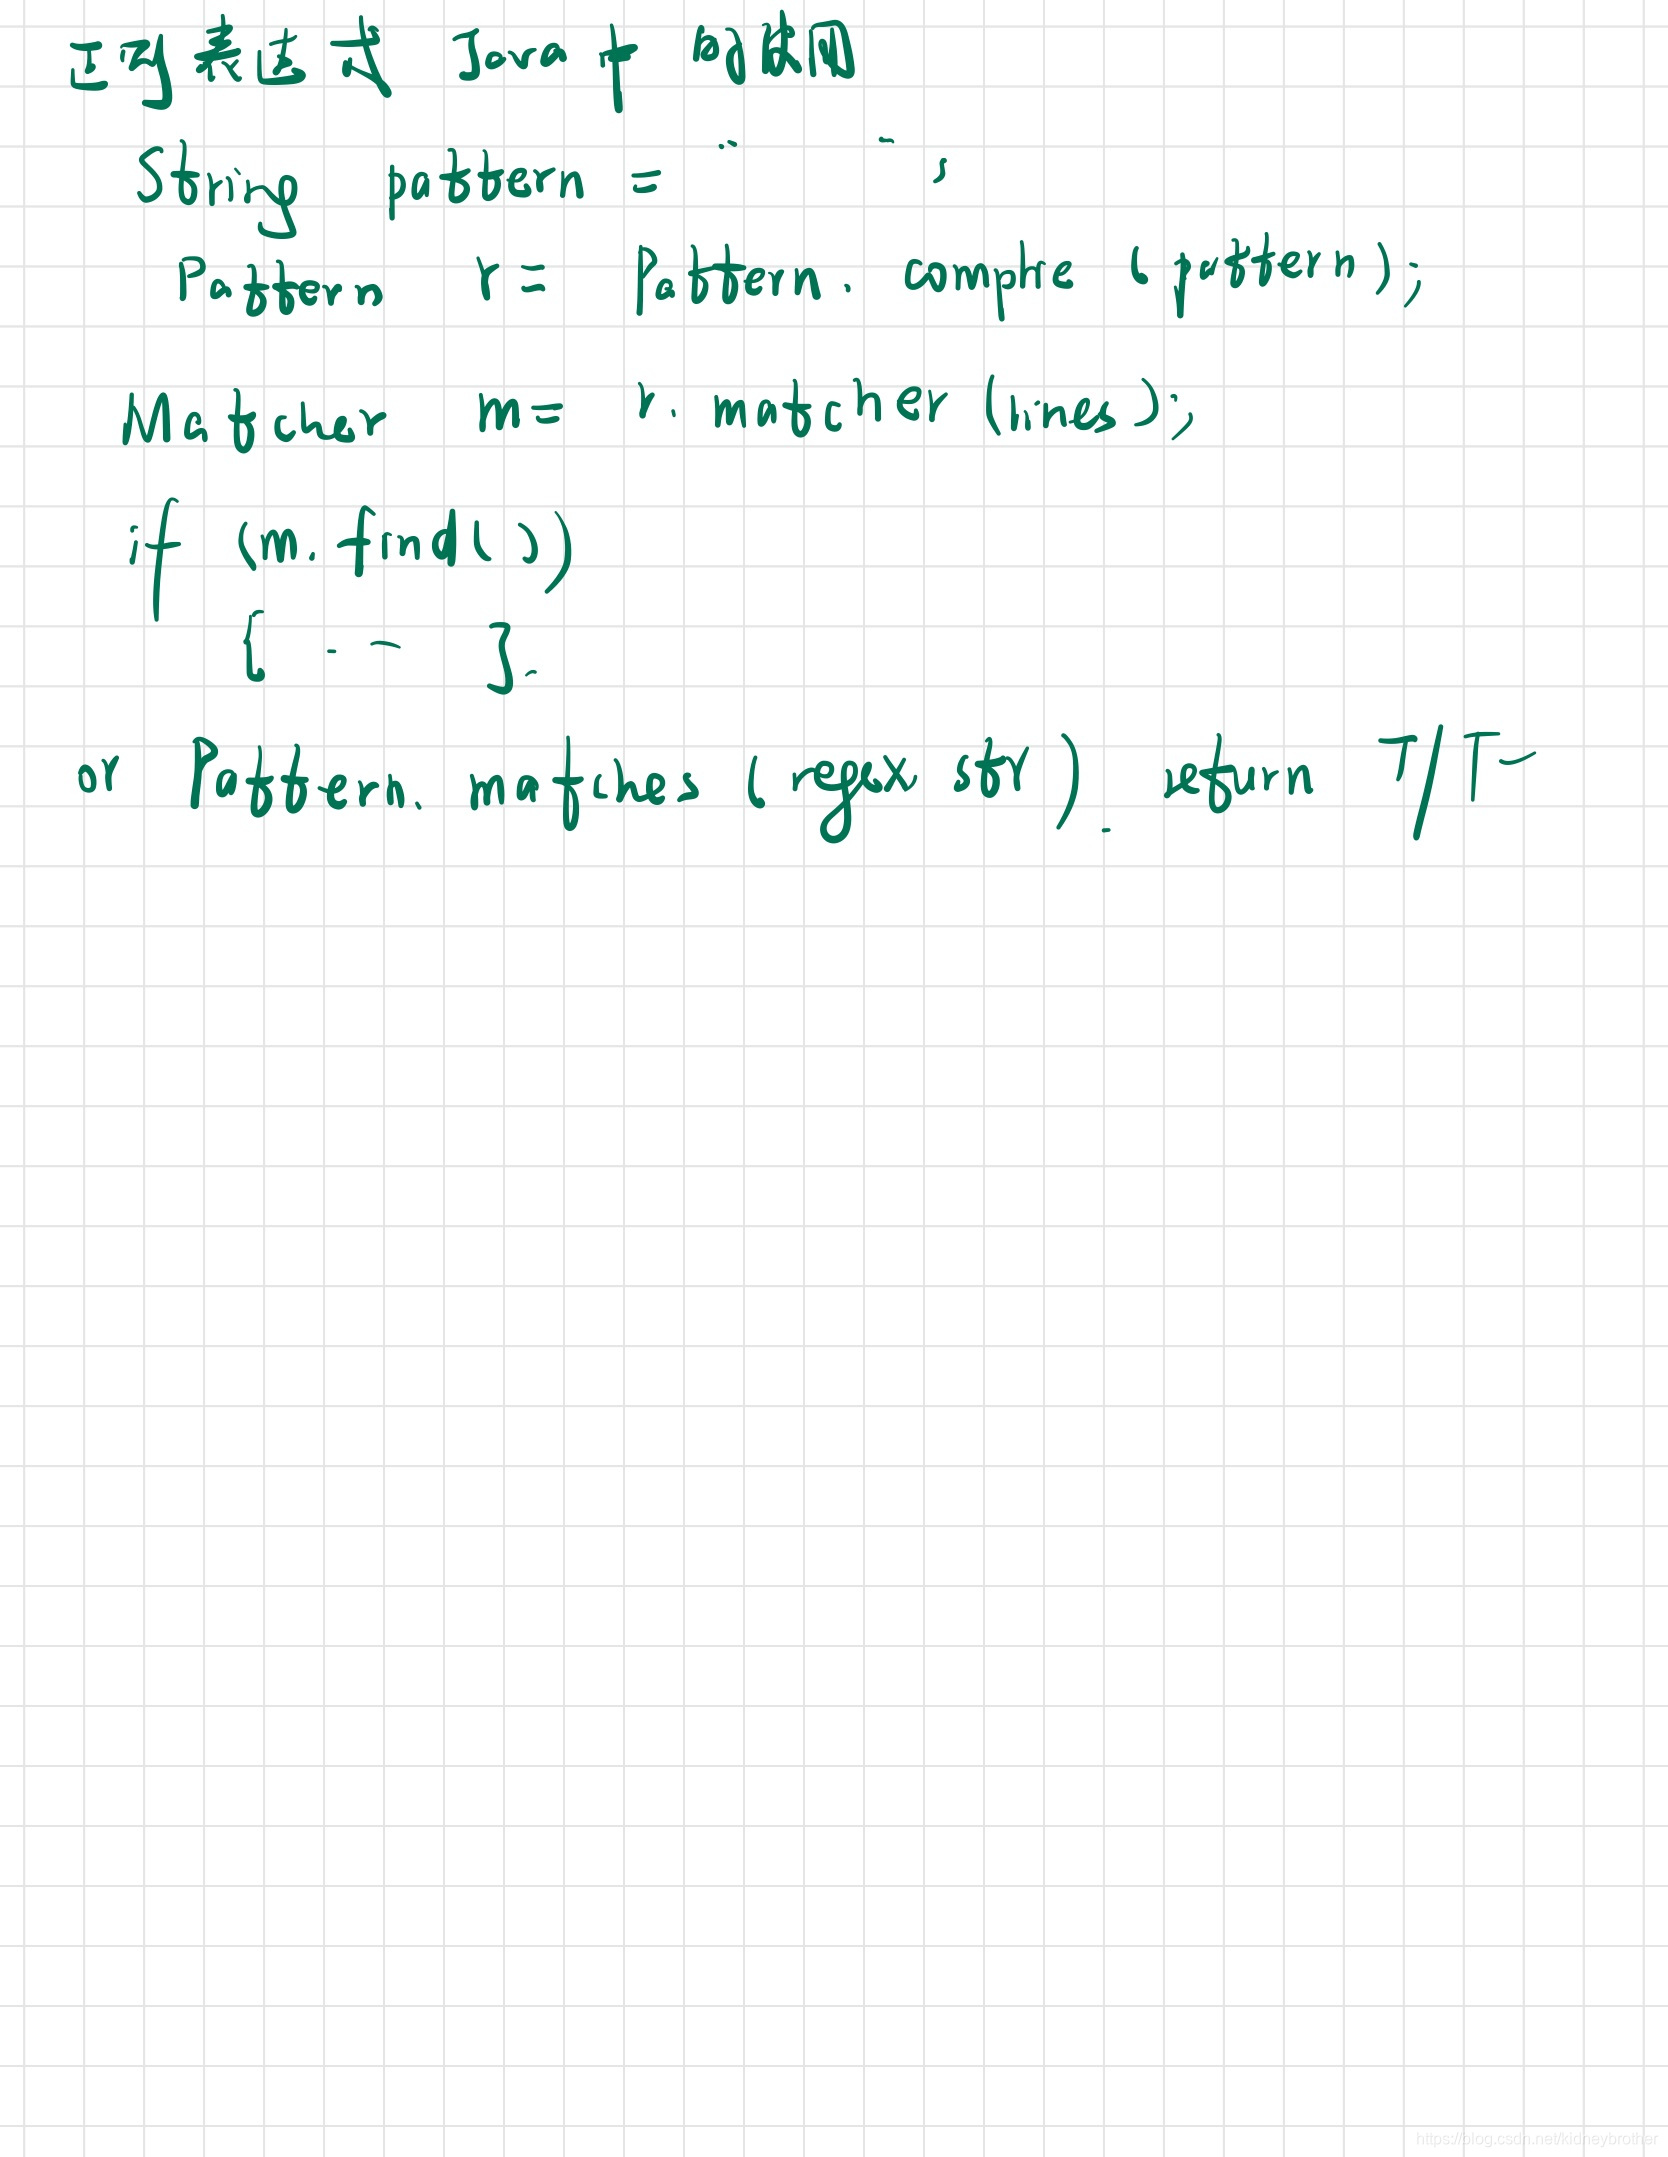 正则表达式 Java 中 的使用
String pattern = " ";
Pattern r = Pattern. compile (pattern);
Matcher m = r. matcher (lines);
if (m. find( ))
{ -- }.
or Pattern. matches (regex str). return T/F
https://blog.csdn.net/kidneybrother